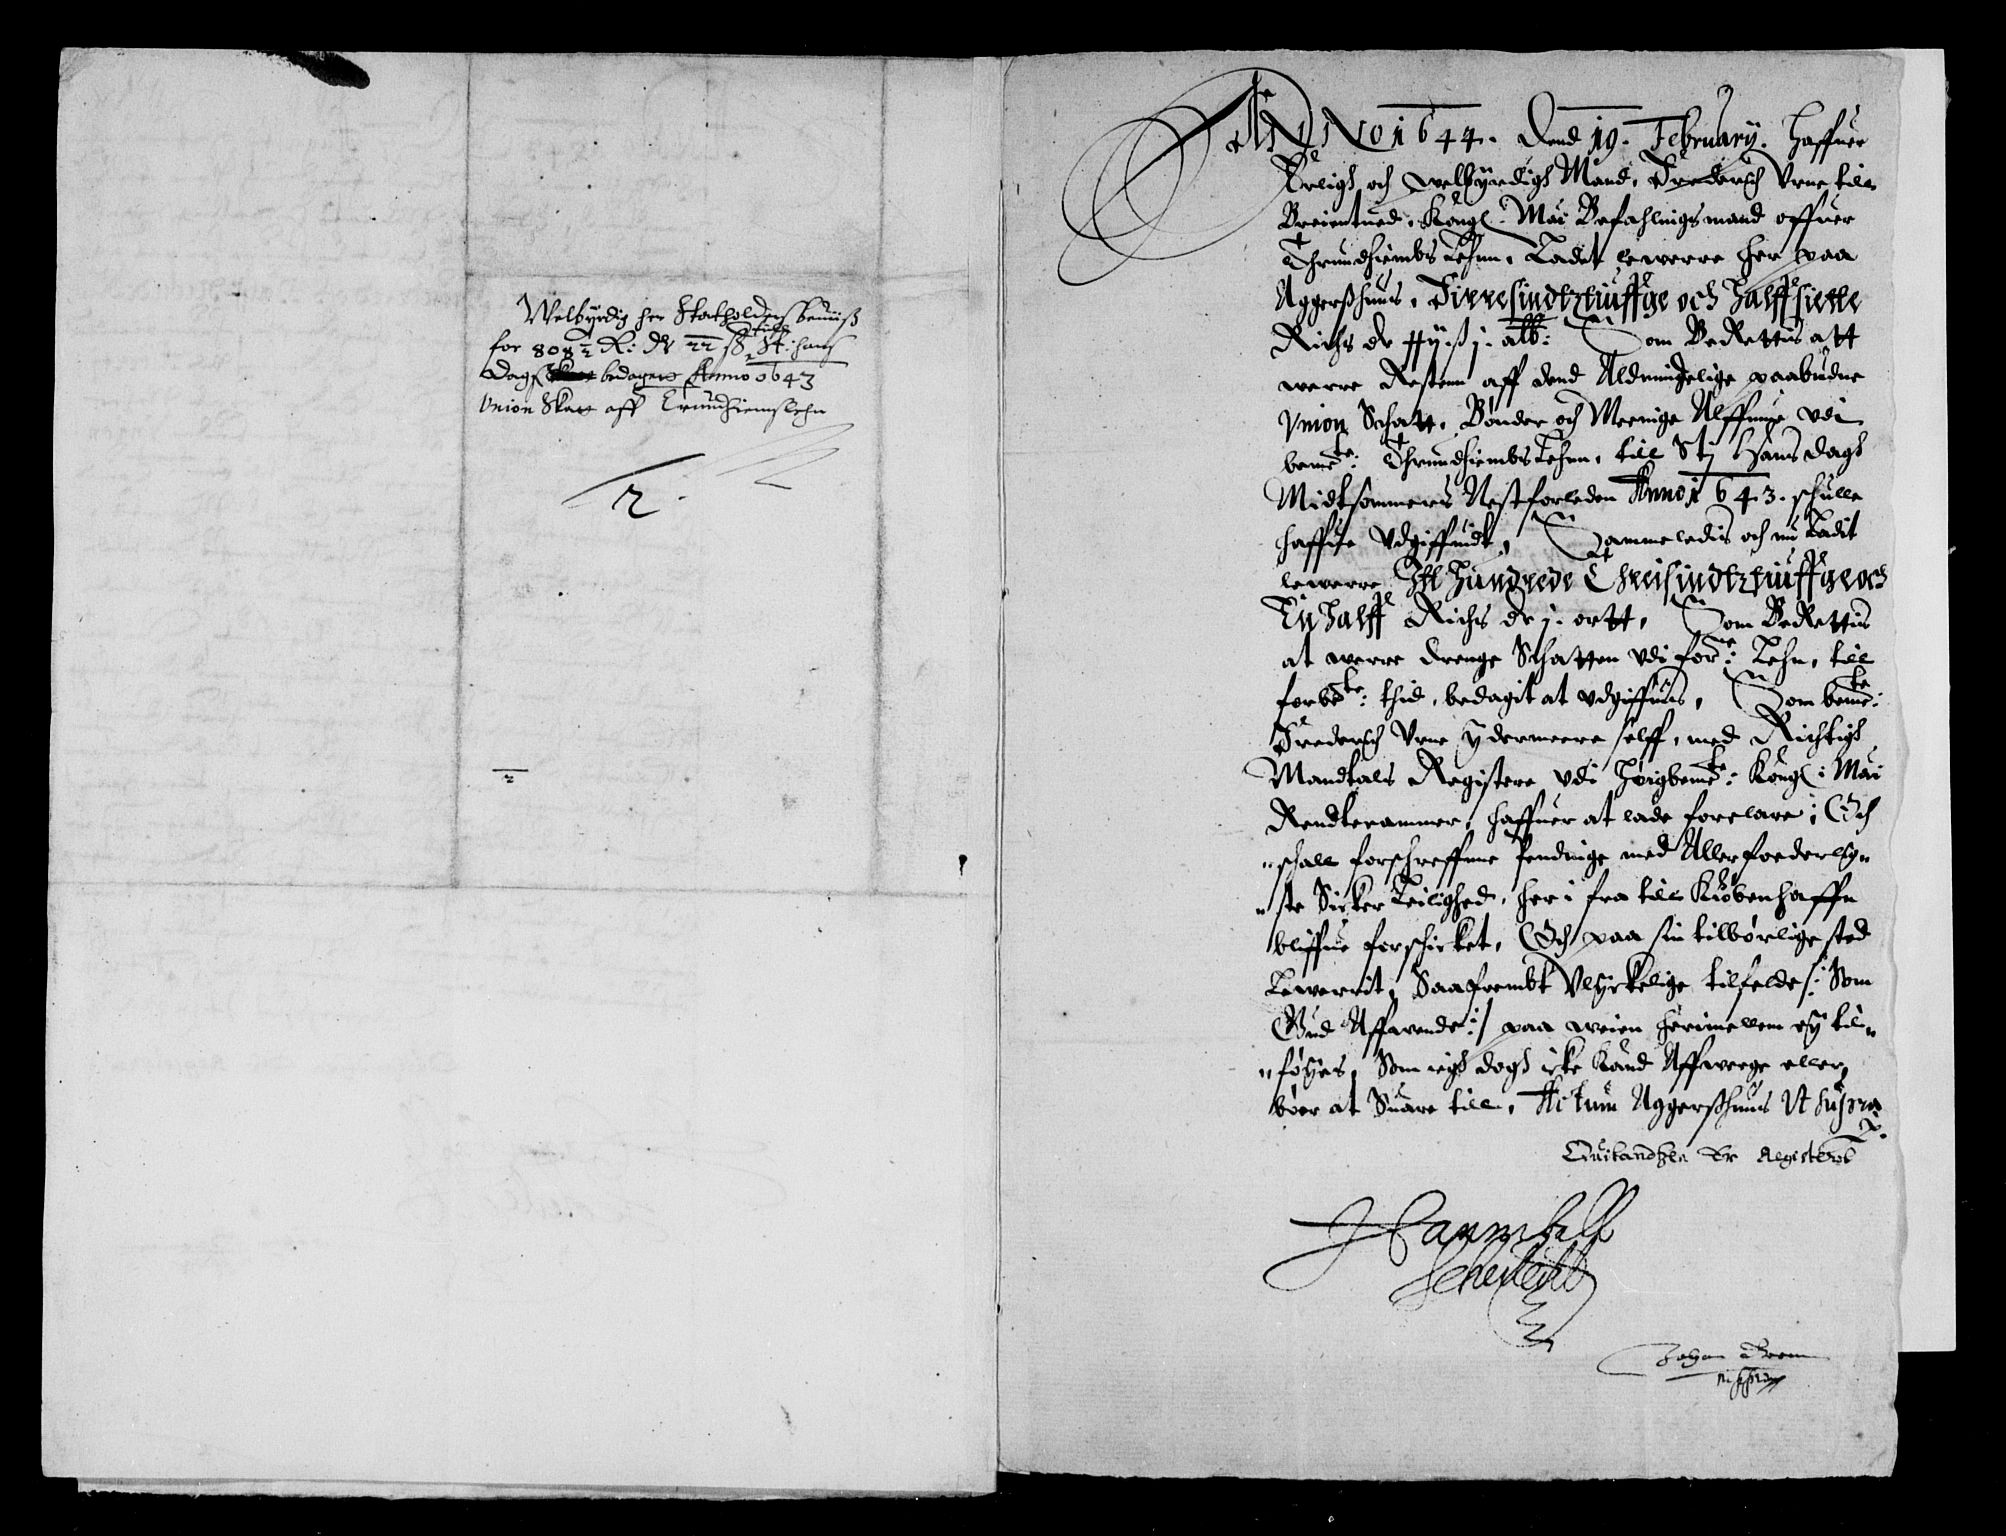 Welbyrdig her Statholders beuiiß
for 808½ R: dr 22 ß Til St: hans
Dag bedagere Anno 1643
Vnion Skatt aff Trundhiemslehn
2.
2
ANNO 1644. Dend 19. February. Haffuer
Erligh och welbyrdigh Mand, Frederich Vrne till
Breientued, Kongl: Maÿ: Befahlingsmand offuer
Thrundhiembs Lehnn, Ladet leuerre her paa
Aggerßhuus, Firresindtztiuffge och Halffsiette
Richs dr ß j. alb: Som Berettis att
werre Resten aff dend Aldmindelige paabudne
Vnion Schatt, Bønder och Meenige Almue vdi
bemte: Thrundhiembs Lehnn, till Stj Hans dagh
Midtsommers Nestforleden Anno 1643. schulle
haffue vdgiffuidt, Sammeledis och nu Ladit
leuerre Siu Hundrede Threisindtztiuffge och
En halff Richs dr j. ortt, Som Berettis
at werre drenge Schatten vdi forne: Lehn, till
forbete: thid, bedagit at vdgiffuis, Som bemte:
Frederich Vrne ÿdermeere selff, med Richtigh
Mandtals Registere vdi Høigbemte: Kongl: Maÿ:
Rendtecammer, haffuer at lade forclare; Och
schall forschreffne pendinge med Allerfoederlig-
ste Sicker Leilighed, her i fra till Kiøbenhaffn
bliffue forschicket, Och paa sin tilbørlige sted
Leuerrit, Saafrembt Vlyckelige tilfelde /: Som
Gud Affwende :/ paa weien herimellem eÿ til-
føyes, Som iegh dogh icke Kand Affwerge eller
bøer at Suare till, Actum Aggerßhuus Vt supra
Quitandtzen Er Registerit
H Sannibell
Sehested